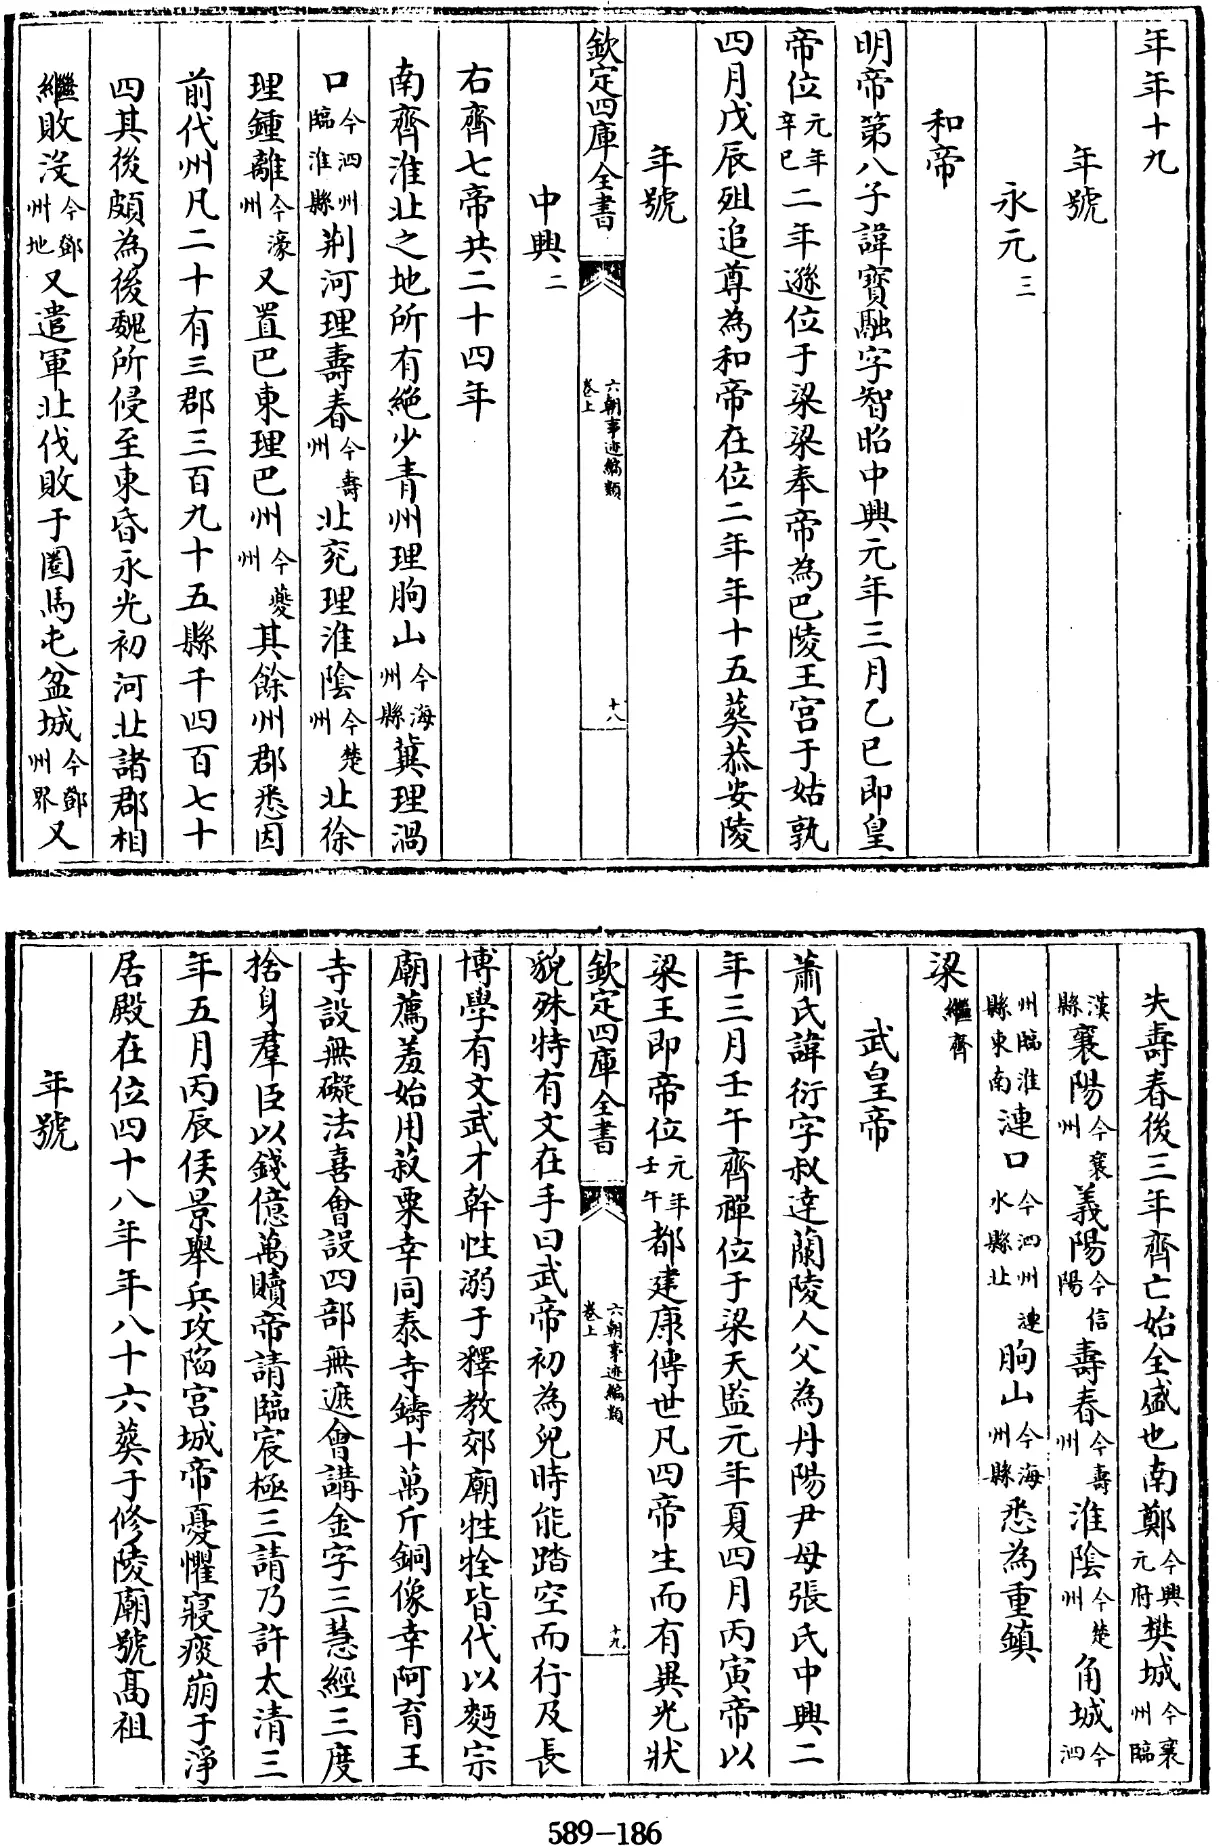 年年十九
年號
永元三
和帝
明帝第八子諱寶融字智昭中興元年三月乙巳即皇
帝位元年辛巳二年遜位于梁梁奉帝為巴陵王宫于姑孰
四月戊辰殂追尊為和帝在位二年年十五葬恭安陵
年號
欽定四庫全書
六朝事迹編類
卷上
十八
中興二
右齊七帝共二十四年
南齊淮北之地所有絶少青州理朐山今海州縣冀理渦
口今泗州臨淮縣荆河理壽春今壽州北兖理淮陰今楚州北徐
理鍾離今濠州又置巴東理巴州今夔州其餘州郡悉因
前代州凡二十有三郡三百九十五縣千四百七十
四其後頗為後魏所侵至東昏永光初河北諸郡相
繼敗沒今鄧州地又遣軍北伐敗于圈馬屯盆城今鄧州界又
失壽春後三年齊亡始全盛也南鄭今興元府樊城今襄州臨
漢縣襄陽今襄州義陽今信陽壽春今壽州淮陰今楚州角城今泗
州臨淮縣東南漣口今泗州漣水縣北朐山今海州縣悉為重鎮
梁繼齊
武皇帝
蕭氏諱衍字叔達蘭陵人父為丹陽尹母張氏中興二
年三月壬午齊禪位于梁天監元年夏四月丙寅帝以
梁王即帝位元年壬午都建康傳世凡四帝生而有異光狀
欽定四庫全書
六朝事迹編類
卷上
十九
貌殊特有文在手曰武帝初為兒時能踏空而行及長
博學有文武才幹性溺于釋教郊廟牲牷皆代以麪宗
廟薦羞始用菽粟幸同泰寺鑄十萬斤銅像幸阿育王
寺設無礙法喜會設四部無遮會講金字三慧經三度
捨身羣臣以錢億萬贖帝請臨宸極三請乃許太清三
年五月丙辰侯景舉兵攻陷宫城帝憂懼寢疾崩于淨
居殿在位四十八年年八十六葬于修陵廟號髙祖
年號
589-186